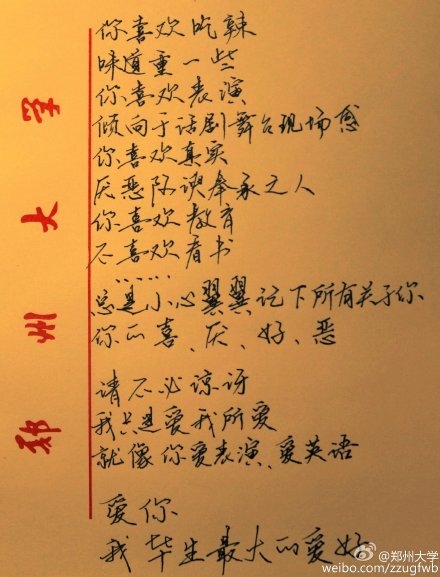 你喜欢吃辣
味道重一些
你喜欢表演
倾向于话剧舞台现场感
你喜欢真实
厌恶阿谀奉承之人
你喜欢教育
不喜欢看书
……
总是小心翼翼记下所有关于你
你的喜、厌、好、恶
请不必惊讶
我只是爱我所爱
就像你爱表演、爱英语
爱你
我毕生最大的爱好
郑州大学
@郑州大学
weibo.com/zzugfwb